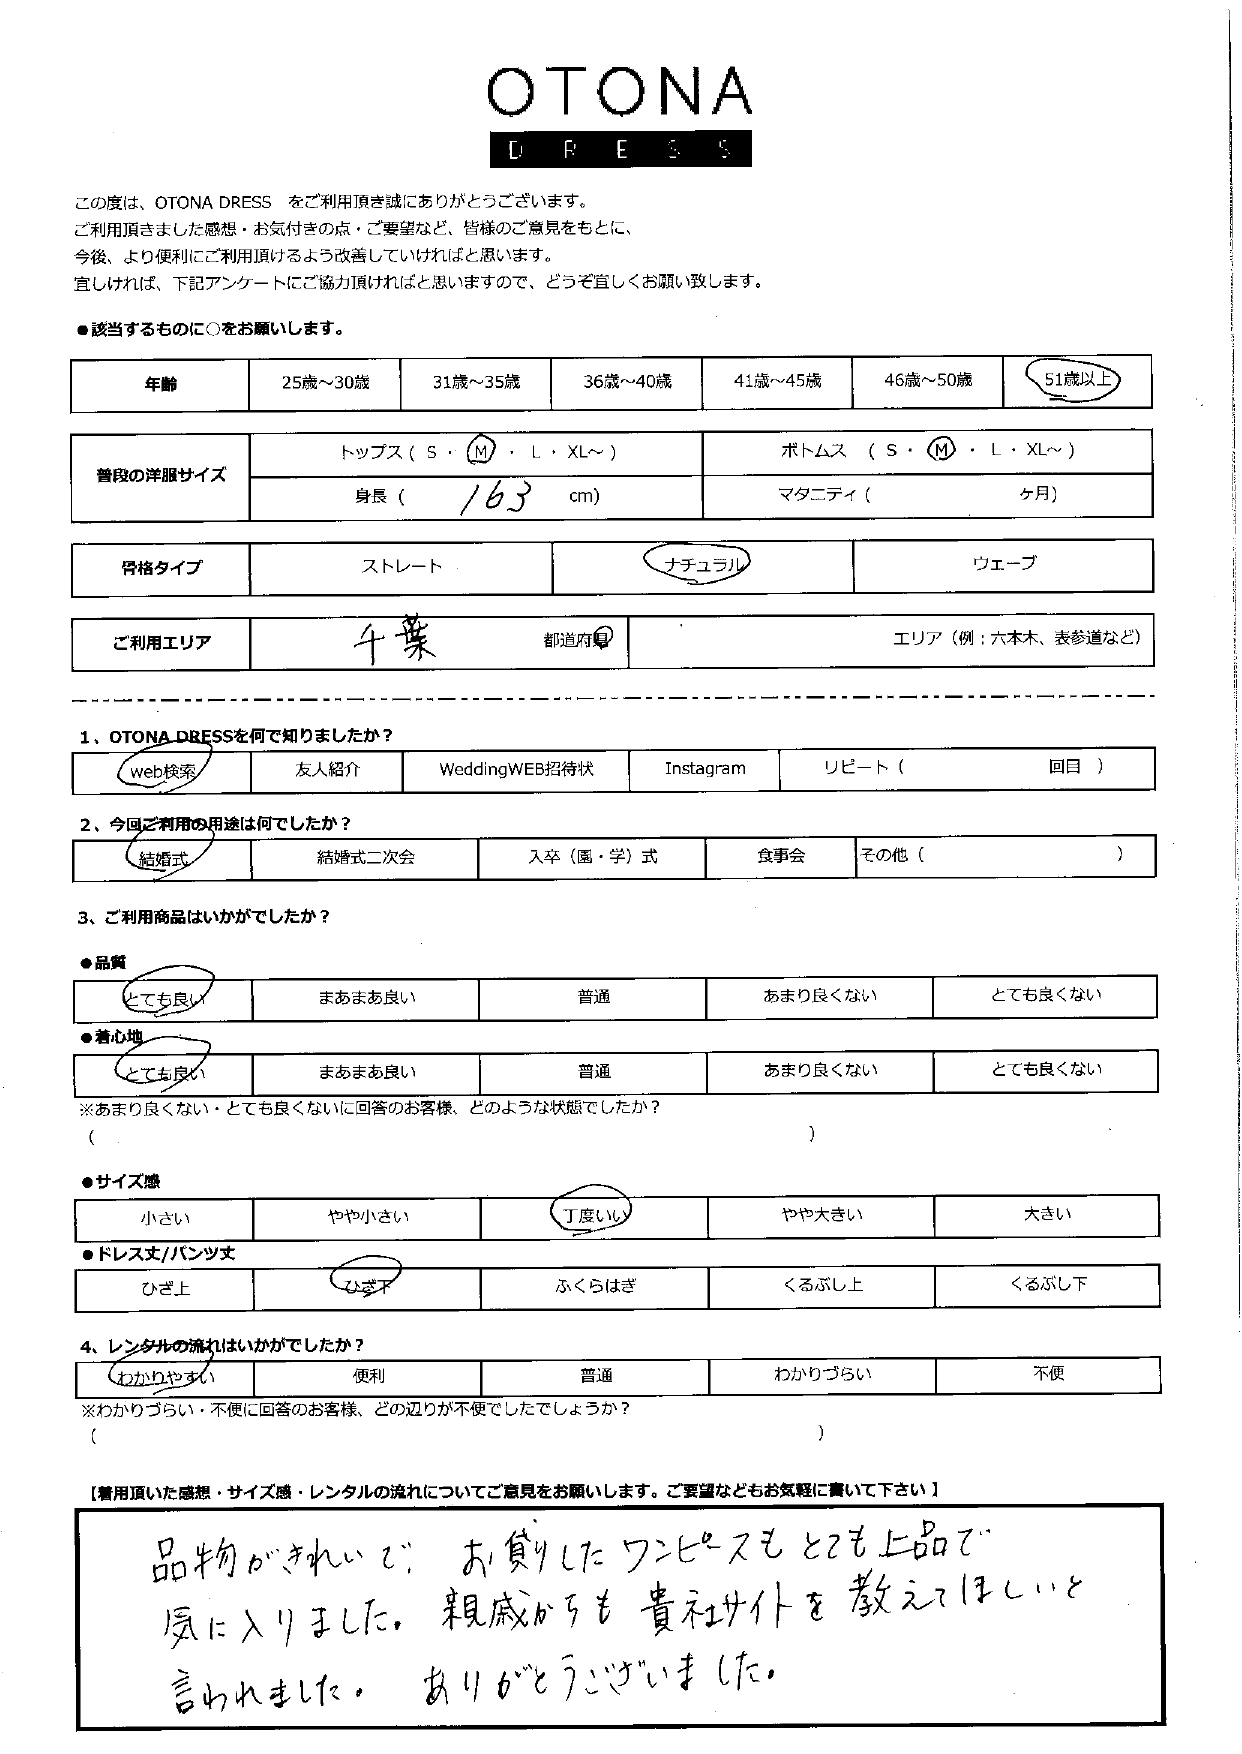 OTONA
DRESS
この度は、OTONA DRESS　をご利用頂き誠にありがとうございます。
ご利用頂きました感想・お気付きの点・ご要望など、皆様のご意見をもとに、
今後、より便利にご利用頂けるよう改善していければと思います。
宜しければ、下記アンケートにご協力頂ければと思いますので、どうぞ宜しくお願い致します。
●該当するものに○をお願いします。
年齢 25歳～30歳 31歳～35歳 36歳～40歳 41歳～45歳 46歳～50歳 51歳以上
普段の洋服サイズ トップス ( S ・ M ・ L ・ XL～ ) ボトムス ( S ・ M ・ L ・ XL～ )
身長 ( 163 cm) マタニティ ( ヶ月)
骨格タイプ ストレート ナチュラル ウェーブ
ご利用エリア 千葉 都道府県 エリア（例：六本木、表参道など）
1、OTONA DRESSを何で知りましたか？
web検索 友人紹介 WeddingWEB招待状 Instagram リピート ( 回目 )
2、今回ご利用の用途は何でしたか？
結婚式 結婚式二次会 入卒（園・学）式 食事会 その他 ( )
3、ご利用商品はいかがでしたか？
●品質
とても良い まあまあ良い 普通 あまり良くない とても良くない
●着心地
とても良い まあまあ良い 普通 あまり良くない とても良くない
※あまり良くない・とても良くないに回答のお客様、どのような状態でしたか？
( )
●サイズ感
小さい やや小さい 丁度いい やや大きい 大きい
●ドレス丈/パンツ丈
ひざ上 ひざ下 ふくらはぎ くるぶし上 くるぶし下
4、レンタルの流れはいかがでしたか？
わかりやすい 便利 普通 わかりづらい 不便
※わかりづらい・不便に回答のお客様、どの辺りが不便でしたでしょうか？
( )
【着用頂いた感想・サイズ感・レンタルの流れについてご意見をお願いします。ご要望などもお気軽に書いて下さい】
品物がきれいで、お貸りしたワンピースもとても上品で
気に入りました。親戚からも貴社サイトを教えてほしいと
言われました。ありがとうございました。